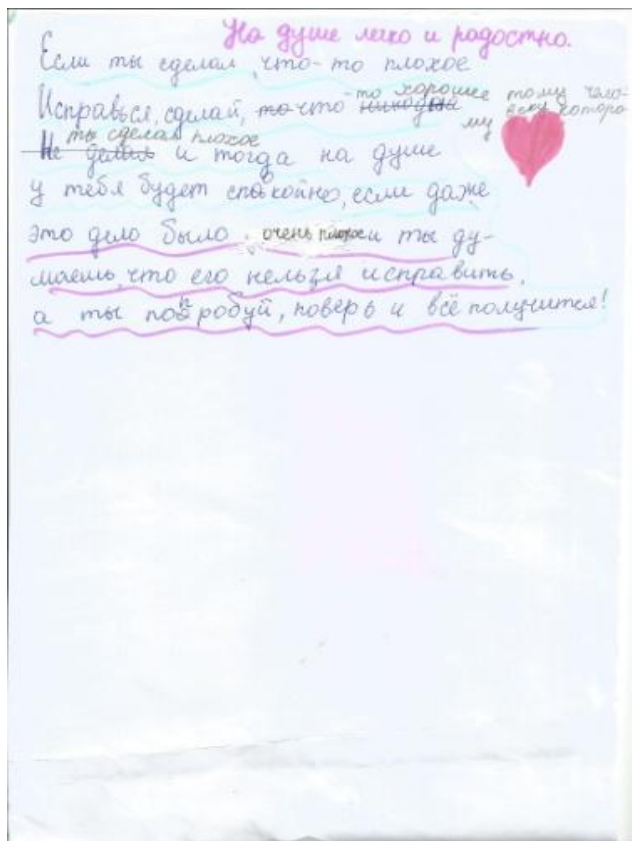 На душе легко и радостно.
Если ты сделал, что-то плохое
Исправься, сделай, то что -то хорошее тому чело-
веку которо
му
Не делал ты сделал плохое и тогда на душе
у тебя будет спокойно, если даже
это дело было очень плохое и ты ду-
маешь, что его нельзя исправить,
а ты попробуй, поверь и всё получится!